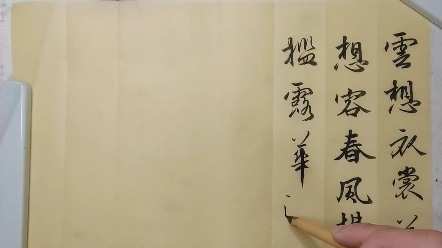 雲想衣裳
想容春風
檻露華